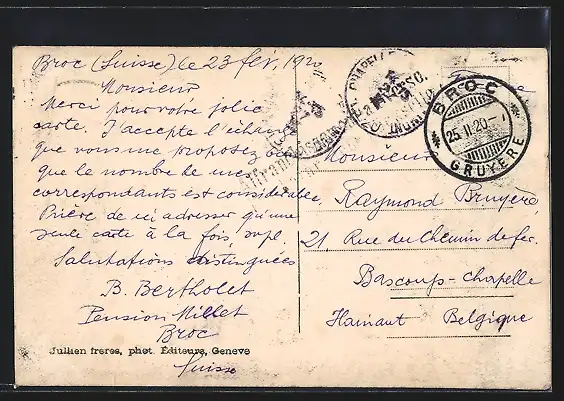 Broc (Suisse) le 23 fév. 1920
Monsieur
Merci pour votre jolie
carte. J'accepte l'échange
que vous me proposez
que le nombre de mes
correspondants est considérable,
Prière de m'adresser qu'une
seule carte à la fois, svpl.
Salutations distinguées
B. Bertholet
Pension Millet
Broc
Suisse
Jullien freres, phot. Éditeurs, Geneve
BROC
25.II.20
GRUYERE
Monsieur
Raymond Bruyère,
21, Rue du Chemin de fer.
Bascoup-Chapelle
Hainaut Belgique